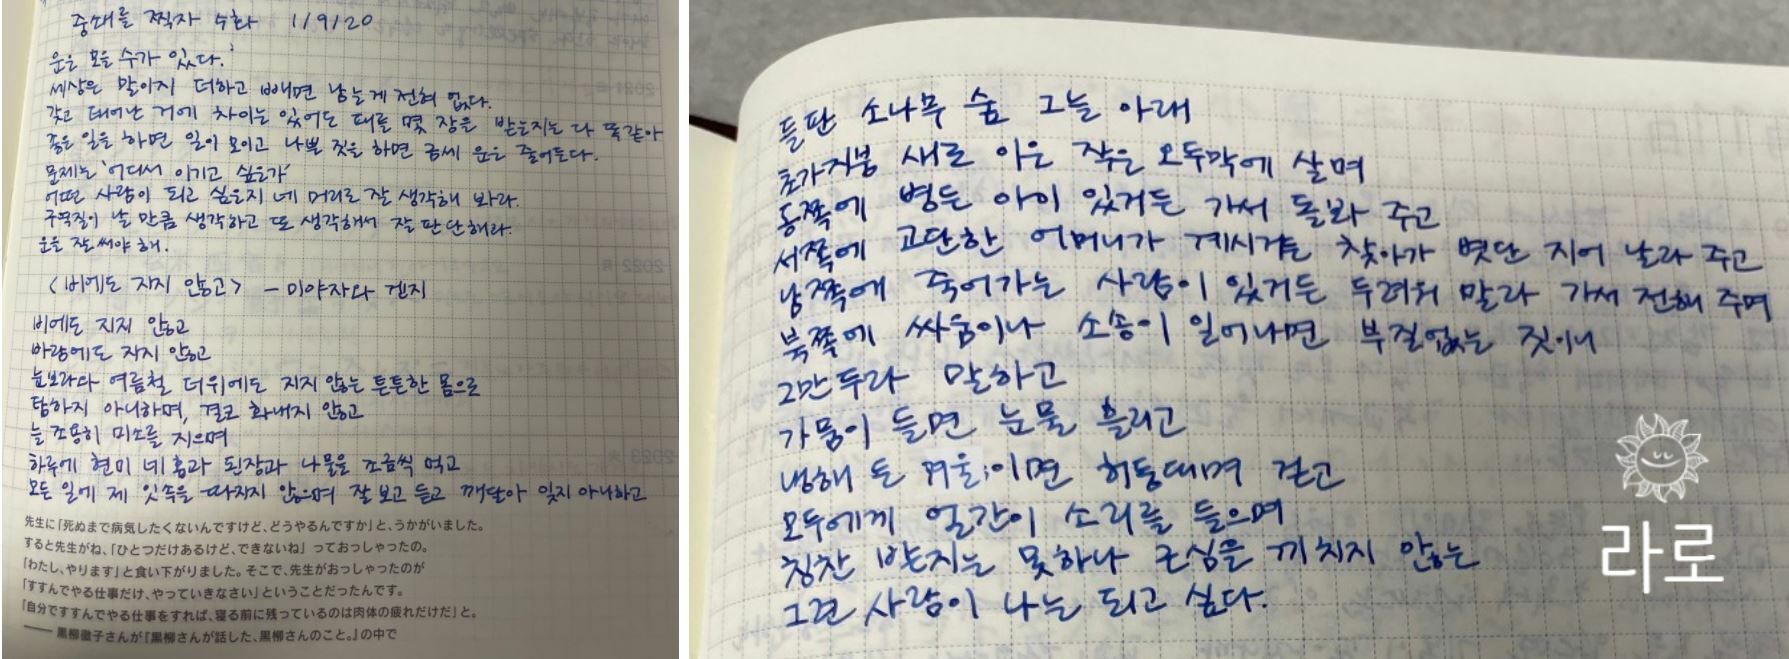 중쇄를 찍자 수화 1/9/20
운은 모을 수가 있다.
세상은 말이지 더하고 빼면 남는게 전혀 없다.
갖고 태어난 거에 차이는 있어도 패를 몇 장을 받는지는 다 똑같아
좋은 일을 하면 일이 모이고 나쁜 짓을 하면 금세 운은 줄어든다.
문제는 '어디서 이기고 싶은가'
어떤 사람이 되고 싶은지 네 머리로 잘 생각해 봐라.
구역질이 날 만큼 생각하고 또 생각해서 잘 판단해라.
운을 잘 써야 해.
<비에도 지지 않고> - 미야자와 겐지
비에도 지지 않고
바람에도 지지 않고
눈보라와 여름철 더위에도 지지 않는 튼튼한 몸으로
탐하지 아니하며, 결코 화내지 않고
늘 조용히 미소를 지으며
하루에 현미 네 홉과 된장과 나물을 조금씩 먹고
모든 일에 제 잇속을 따지지 않으며 잘 보고 듣고 깨달아 잊지 아니하고
先生に「死ぬまで病気したくないんですけど、どうやるんですか」と、うかがいました。
すると先生がね、「ひとつだけあるけど、できないね」っておっしゃったの。
「わたし、やります」と食い下がりました。そこで、先生がおっしゃったのが
「すすんでやる仕事だけ、やっていきなさい」ということだったんです。
「自分ですすんでやる仕事をすれば、寝る前に残っているのは肉体の疲れだけだ」と。
―― 黒柳徹子さんが『黒柳さんが話した、黒柳さんのこと。』の中で
들판 소나무 숲 그늘 아래
초가지붕 새로 이은 작은 오두막에 살며
동쪽에 병든 아이 있거든 가서 돌봐 주고
서쪽에 고단한 어머니가 계시거든 찾아가 볏단 지어 날라 주고
남쪽에 죽어가는 사람이 있거든 두려워 말라 가서 전해 주며
북쪽에 싸움이나 소송이 일어나면 부질없는 짓이니
그만두라 말하고
가뭄이 들면 눈물 흘리고
냉해 든 겨울이면 허둥대며 걷고
모두에게 얼간이 소리를 들으며
칭찬 받지는 못하나 근심을 끼치지 않는
그런 사람이 나는 되고 싶다.
라로